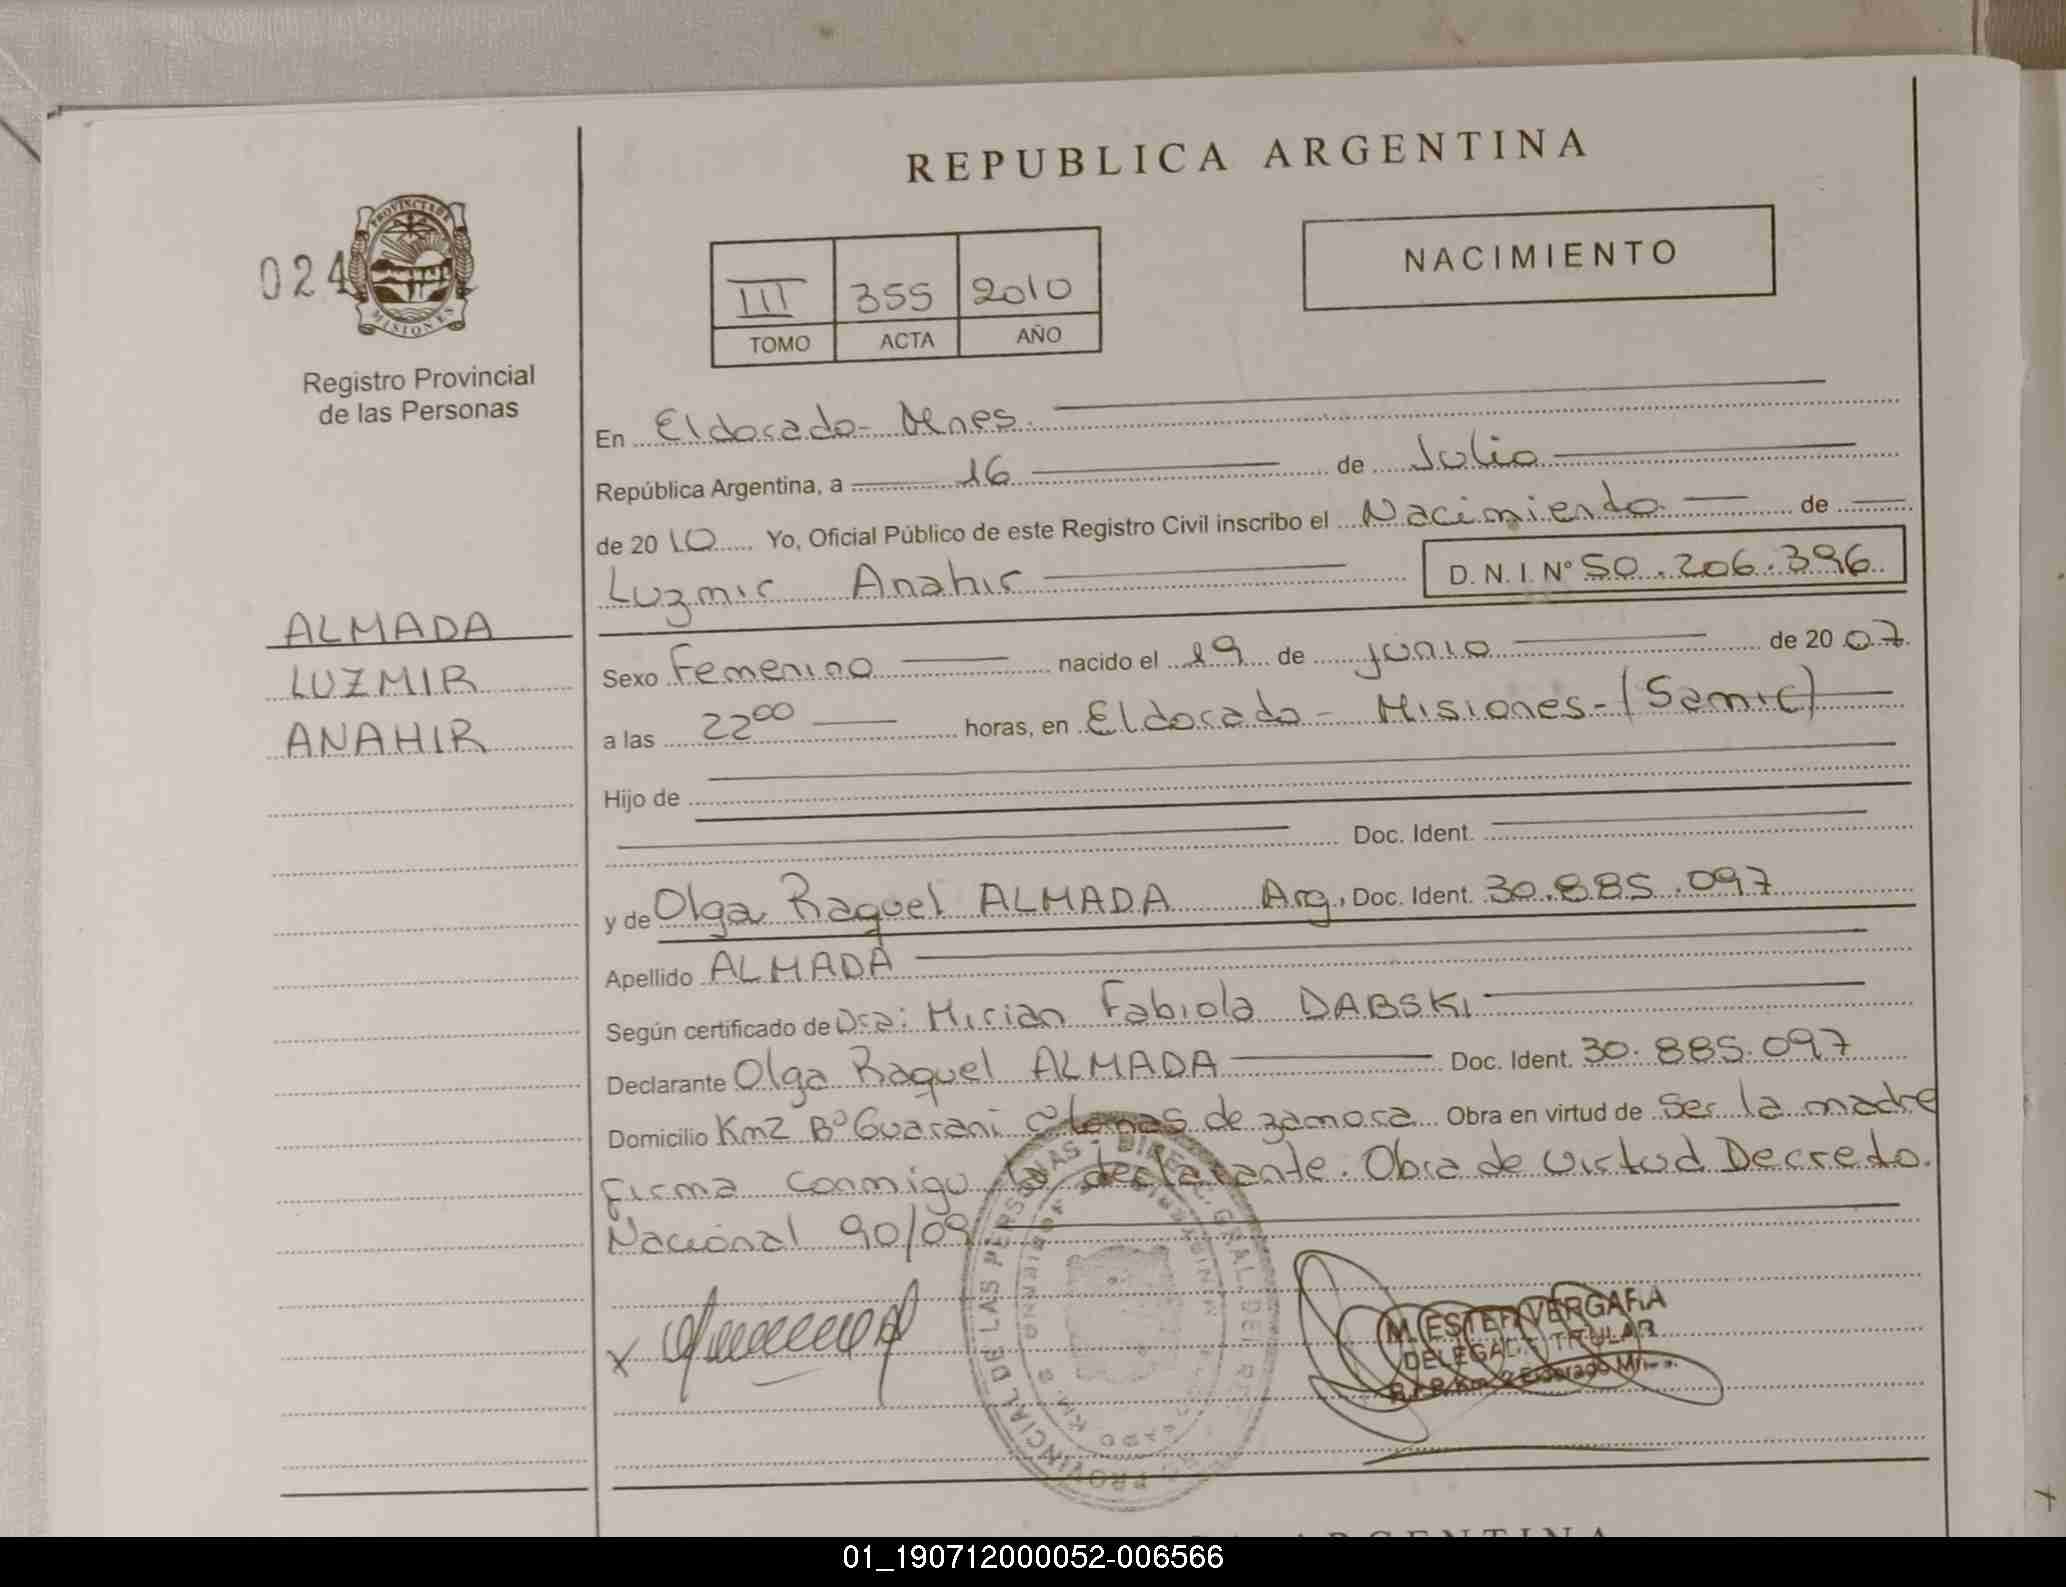 REPUBLICA ARGENTINA
NACIMIENTO
024
PROVINCIA DE MISIONES
Registro Provincial
de las Personas
III 355 2010
TOMO ACTA AÑO
En Eldorado - Mnes.
República Argentina, a 16 de Julio
de 2010 Yo, Oficial Público de este Registro Civil inscribo el Nacimiento de
Luzmir Anahir D.N.I. Nº 50.206.396
ALMADA
LUZMIR
ANAHIR
Sexo Femenino nacido el 19 de junio de 2007.
a las 22⁰⁰ horas, en Eldorado - Misiones - (Samic)
Hijo de
Doc. Ident.
y de Olga Raquel ALMADA Arg. Doc. Ident. 30.885.097
Apellido ALMADA
Según certificado de Dra: Mirian Fabiola DABSKI
Declarante Olga Raquel ALMADA Doc. Ident. 30.885.097
Domicilio Km2 Bº Guarani de zamora Obra en virtud de Ser la madre
firma conmigo la declarante. Obra de virtud Decreto.
Nacional 90/09
PROVINCIAL DE LAS PERSONAS DIREC. GRAL. DEL
M. ESTER VERGARA
DELEGADA TITULAR
Km. 2 Eldorado
ARGENTINA
01_190712000052-006566